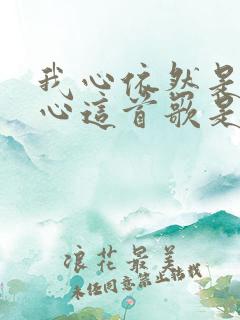 我心依然是
心這首歌是
浪花最美
未经同意禁止转载